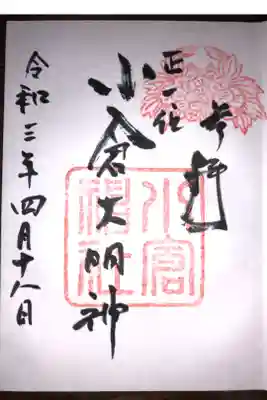 奉拝
正一位
小倉大明神
令和三年四月十八日
小倉神社